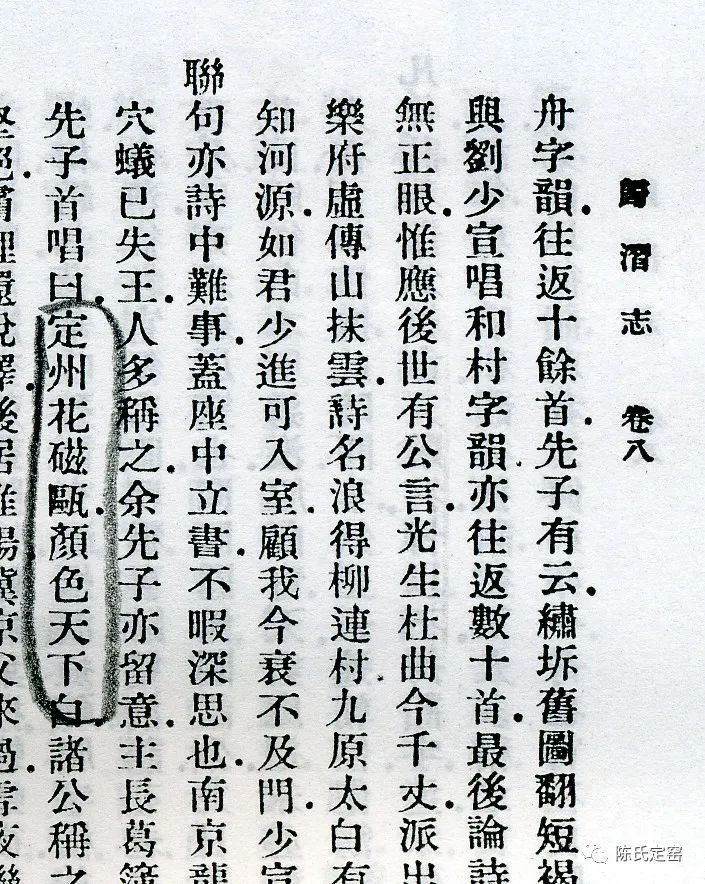 歸潛志 卷八
舟字韻．往返十餘首．先子有云．繡坼舊圖翻短褐
興劉少宣唱和村字韻亦往返數十首．最後論詩
無正眼．惟應後世有公言光生杜曲今千丈．派出
樂府虛傳山抹雲．詩名浪得柳連村九原太白有
知河源．如君少進可入室．顧我今衰不及門．少宣
聯句亦詩中難事．蓋座中立書．不暇深思也．南京龍
穴蟻已失王．人多稱之．余先子亦留意．主長葛簿
先子首唱曰．定州花磁甌．顏色天下白諸公稱之
陈氏定窑